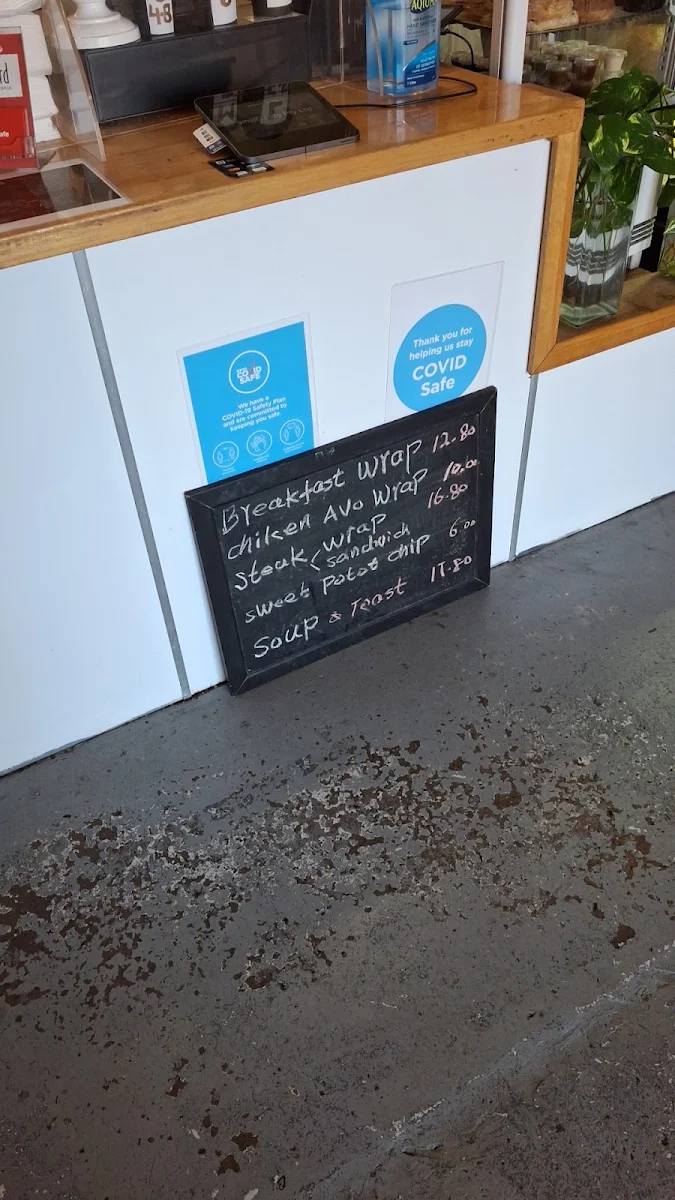 48
AQIUM
We have a
COVID-19 Safety Plan
and are committed to
keeping you safe
COVID
SAFE
Thank you for
helping us stay
COVID
Safe
Breakfast Wrap 12.80
chiken Avo Wrap 10.00
steak < wrap 16.80
sandwich
sweet potat chip 6.00
Soup & Toast 17.80